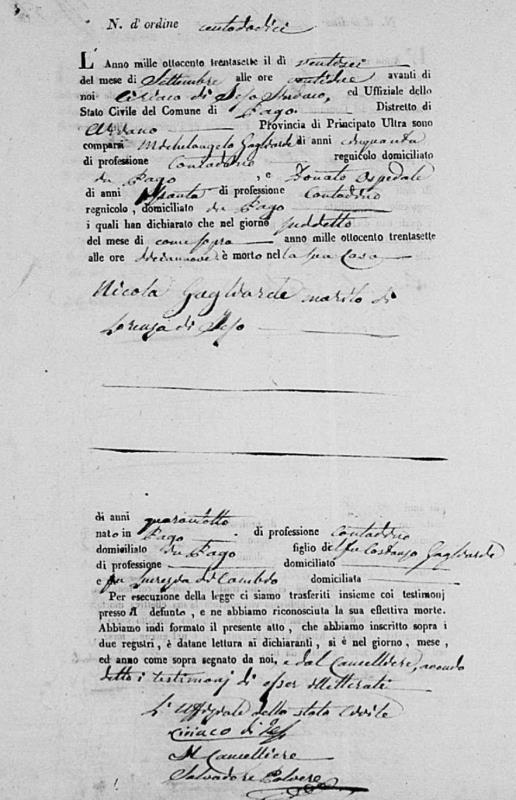 N. d'ordine centododici
L'Anno mille ottocento trentasette il dì ventisei
del mese di Settembre alle ore ventidue avanti di
noi Ciriaco di Sindaco, ed Uffiziale dello
Stato Civile del Comune di Pago Distretto di
Provincia di Principato Ultra sono
comparsi Michelangelo Gagliarde di anni cinquanta
di professione Contadino regnicolo domiciliato
in Pago, e Donato Ospedale
di anni di professione Contadino
regnicolo, domiciliato in Pago
i quali han dichiarato che nel giorno suddetto
del mese di come sopra anno mille ottocento trentasette
alle ore diciannove è morto nella sua Casa
Nicola Gagliarde marito di
Lorenza di
di anni quarantotto
nato in Pago di professione contadino
domiciliato in Pago figlio del fu Costanzo Gagliarde
di professione domiciliato
e fu domiciliata
Per esecuzione della legge ci siamo trasferiti insieme coi testimonj
presso il defunto, e ne abbiamo riconosciuta la sua effettiva morte.
Abbiamo indi formato il presente atto, che abbiamo inscritto sopra i
due registri, è datane lettura ai dichiaranti, si è nel giorno, mese,
ed anno come sopra segnato da noi, e dal Cancelliere, avendo
detto i testimonj di esser illetterati
L'Uffiziale dello stato Civile
Ciriaco di
Il Cancelliere
Salvadore Polvere